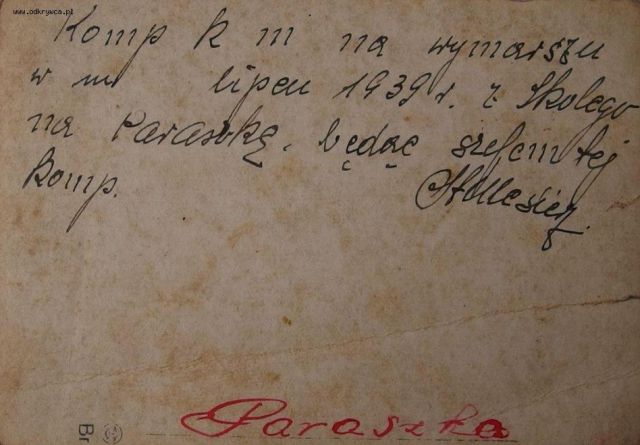 www.odkrywca.pl
Komp k m na wymarszu
w m lipcu 1939 r. z Skolego
na Paraszkę, będąc szefem tej
komp.
Paraszka
Br